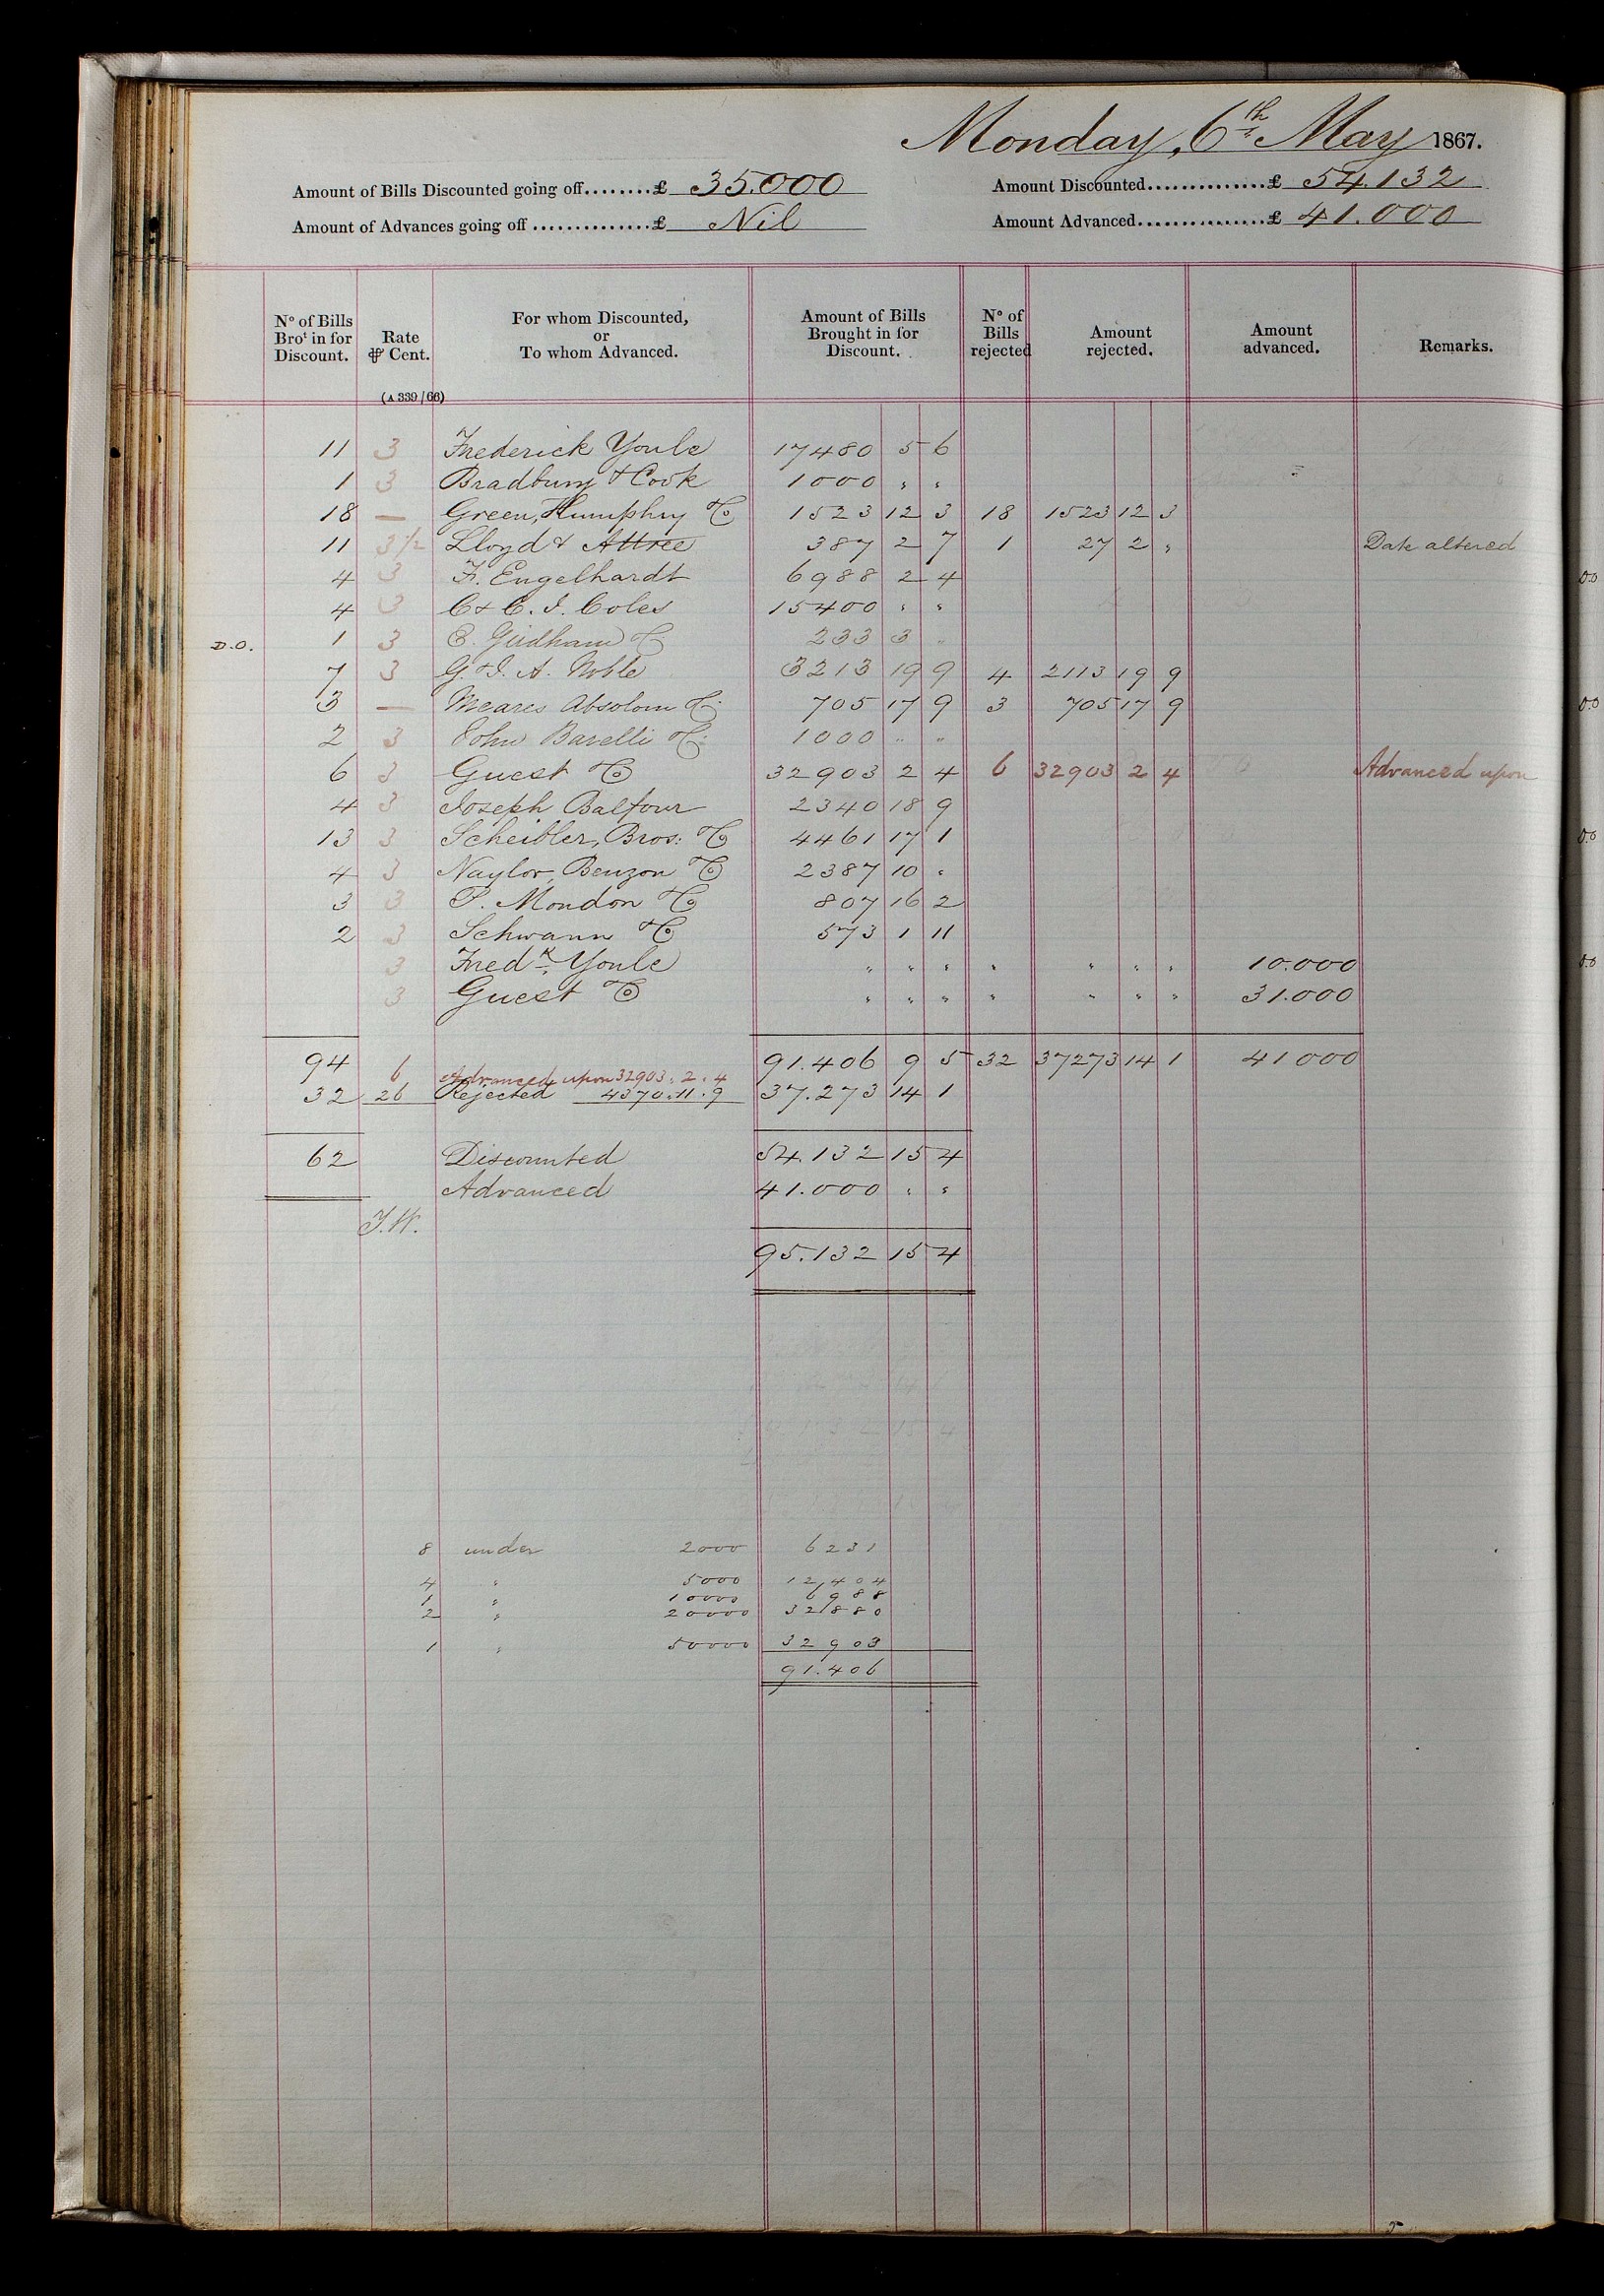 Monday, 6th May 1867.
Amount of Bills Discounted going off........£ 35.000 Amount Discounted..............£ 54.132
Amount of Advances going off..............£ Nil Amount Advanced................£ 41.000
No of Bills Brot in for Discount. Rate ⅌ Cent. For whom Discounted, or To whom Advanced. Amount of Bills Brought in for Discount. No of Bills rejected Amount rejected. Amount advanced. Remarks.
(A 339/66)
11 3 Frederick Youle 17480 5 6
1 3 Bradbury & Cook 1000 " "
18 — Green, Humphry & Co 1523 12 3 18 1523 12 3
11 3½ Lloyd & Attree 387 2 7 1 27 2 " Date altered
4 3 F. Engelhardt 6988 2 4
4 3 C & C. I. Coles 15400 " "
D.O. 1 3 E. & Co 233 3 "
7 3 G. & I. A. Noble 3213 19 9 4 2113 19 9
3 — Meares Absolom & Co 705 17 9 3 705 17 9
2 3 John Barelli & Co 1000 " "
6 3 Guest & Co 32903 2 4 6 32903 2 4 Advanced upon
4 3 Joseph Balfour 2340 18 9
13 3 Scheibler, Bros: & Co 4461 17 1
4 3 Naylor, Benzon & Co 2387 10 "
3 3 P. Mondon & Co 807 16 2
2 3 Schwann & Co 573 1 11
3 Fredk Youle " " " " " " " 10.000
3 Guest & Co " " " " " " " 31.000
94 91.406 9 5 32 37273 14 1 41000
6 Advanced upon 32903. 2. 4
32 26 Rejected 4370.11.9 37.273 14 1
62 Discounted 54.132 15 4
Advanced 41.000 " "
J.W.
95.132 15 4
8 under 2000 6231
4 " 5000 12,404
1 " 10000 6988
2 " 20000 32880
1 " 50000 32903
91.406